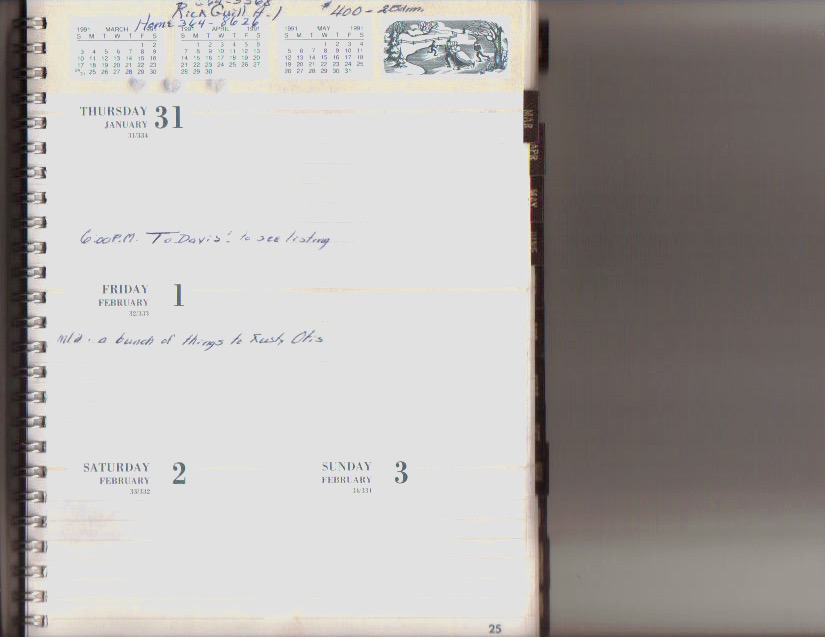 Rick Guill A-1 $400-
Home 364-8626
1991 MARCH 1991
S M T W T F S
1 2
3 4 5 6 7 8 9
10 11 12 13 14 15 16
17 18 19 20 21 22 23
24/31 25 26 27 28 29 30
1991 APRIL 1991
S M T W T F S
1 2 3 4 5 6
7 8 9 10 11 12 13
14 15 16 17 18 19 20
21 22 23 24 25 26 27
28 29 30
1991 MAY 1991
S M T W T F S
1 2 3 4
5 6 7 8 9 10 11
12 13 14 15 16 17 18
19 20 21 22 23 24 25
26 27 28 29 30 31
THURSDAY 31
JANUARY
31/334
6:00 P.M. To Davis' to see listing
FRIDAY 1
FEBRUARY
32/333
Mld. a bunch of things to Rusty Otis
SATURDAY 2
FEBRUARY
33/332
SUNDAY 3
FEBRUARY
34/331
MAR
APR
MAY
JUNE
25